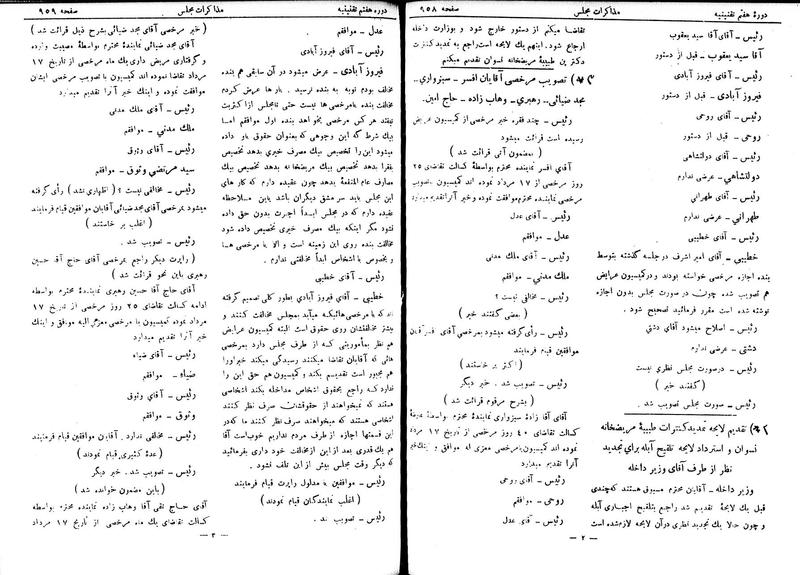 دوره هفتم تقنینیه
مذاکرات مجلس
صفحه ۹۵۸
رئیس ـ آقای آقا سید یعقوب
آقا سید یعقوب ـ قبل از دستور
رئیس ـ آقای فیروز آبادی
فیروز آبادی ـ قبل از دستور
رئیس ـ آقای روحی
روحی ـ قبل از دستور
رئیس ـ آقای دولتشاهی
دولتشاهی ـ عرضی ندارم
رئیس ـ آقای طهرانی
طهرانی ـ عرضی ندارم
رئیس ـ آقای خطیبی
خطیبی ـ آقای امیر اشرف در جلسه گذشته بتوسط
بنده اجازه مرخصی خواسته بودند و در کمیسیون عرایض
هم تصویب شده چون در صورت مجلس بدون اجازه
نوشته شده است مقرر فرمائید تصحیح شود .
رئیس ـ اصلاح میشود آقای دشتی
دشتی ـ عرضی ندارم
رئیس ـ در صورت مجلس نظری نیست
( گفتند خیر )
رئیس ـ صورت مجلس تصویب شد .
۲ـ تقدیم لایحه تمدید کنترات طبیبۀ مریضخانه
نسوان و استرداد لایحه تلقیح آبله برای تجدید
نظر از طرف آقای وزیر داخله
وزیر داخله ـ آقایان محترم مسبوق هستند که چندی
قبل یک لایحۀ تقدیم شد راجع بتلقیح اجباری آبله
و چون حالا یک تجدید نظری در آن لایحه لازم شده است
تقاضا میکنم از دستور خارج شود و بوزارت داخله
ارجاع شود . اینهم یک لایحه است راجع به تمدید کنترات
دکترین طبیبۀ مریضخانه نسوان تقدیم میکنم
۳ـ تصویب مرخصی آقایان افسر ـ سبزواری ـ
مجد ضیائی ـ رهبری ـ وهاب زاده ـ حاج امین .
رئیس ـ چند فقره خبر مرخصی از کمیسیون عرایض
رسیده است قرائت میشود
( بمضمون آتی قرائت شد )
آقای افسر نماینده محترم بواسطۀ کسالت تقاضای ۲۵
روز مرخصی از ۱۷ مرداد نموده اند کمیسیون بتصویب
مرخصی نماینده محترم موافقت نموده و خبر آنرا تقدیم میدارد
رئیس ـ آقای عدل
عدل ـ موافقم
رئیس ـ آقای ملک مدنی
ملک مدنی ـ موافقم
رئیس ـ مخالفی نیست ؟
( بعضی گفتند خیر )
رئیس ـ رأی گرفته میشود بمرخصی آقای افسر آقایان
موافقین قیام فرمایند
( اکثر برخاستند )
رئیس ـ تصویب شد . خبر دیگر
( بشرح مرقوم قرائت شد )
آقای آقا زادۀ سبزواری نمایندۀ محترم بواسطۀ
کسالت تقاضای ۴۰ روز مرخصی از تاریخ ۱۷ مرداد
نموده اند کمیسیون بامرخصی معزی الیه موافق و اینک خبر
آنرا تقدیم میدارد
رئیس ـ آقای روحی
روحی ـ موافقم
رئیس ـ آقای عدل
ـ ۲ ـ
دوره هفتم تقنینیه
مذاکرات مجلس
صفحه ۹۵۹
عدل ـ موافقم
رئیس ـ آقای فیروز آبادی
فیروز آبادی ـ عرض میشود در آن سابقی هم بنده
مخالف بودم نوبه به بنده نرسید . بارها عرض کردم
مخالفت بنده بامرخصی ها نیست حتی تا مجلس از اکثریت
نیفتد هر کس مرخصی بخواهد بنده اول موافقم اما
بیک شرط که این وجوهی که بعنوان حقوق باو داده
میشود این را تخصیص بیک مصرف خیری بدهد تخصیص
بفقرا بدهد تخصیص بیک مریضخانه بدهد تخصیص
مصارف عام المنفعۀ بدهد چون عقیده دارم که کار های
این مجلس باید سر مشق دیگران باشد باین ملاحظه
عقیده دارم که در مجلس ابداً اجرت بدون حق داده
نشود مگر اینکه بیک مصرف خیری تخصیص داده شود
مخالفت بنده روی این زمینه است و الا با مرخصی ها
و بخصوص با اشخاص ابداً مخالفتی ندارم .
رئیس ـ آقای خطیبی
خطیبی ـ آقای فیروز آبادی بطور کلی تصمیم گرفته
اند که با مرخصی هائیکه میآید بمجلس مخالفت کنند و
بیشتر مخالفتشان روی حقوق است البته کمیسیون عرایض
هم نظر بمأموریتی که از طرف مجلس دارد بمرخصی
هائی که آقایان تقاضا میکنند رسیدگی میکند خبر اورا
هم مجبور است تقدیم بکند و کمیسیون هم حق این را
ندارد که راجع بحقوق اشخاص مداخله بکند اشخاصی
هستند که نمیخواهند از حقوقشان صرف نظر کنند
اشخاصی هستند که میخواهند صرف نظر کنند ما که در
این قسمتها اجازه از طرف مردم نداریم خوب است آقا
هم یک قدری بعد از این از مخالفت خود داری بفرمائید
که دیگر وقت مجلس بیش از این تلف نشود .
رئیس ـ موافقین با مدلول راپرت قیام فرمایند
( اغلب نمایندگان قیام نمودند )
رئیس ـ تصویب شد .
( خبر مرخصی آقای مجد ضیائی بشرح ذیل قرائت شد )
آقای مجد ضیائی نمایندۀ محترم بواسطۀ مصیبت وارده
و گرفتاری مریض داری یک ماه مرخصی از تاریخ ۱۷
مرداد تقاضا نموده اند کمیسیون با تصویب مرخصی ایشان
موافقت نموده و اینک خبر آنرا تقدیم میدارد
رئیس ـ آقای ملک مدنی
ملک مدنی ـ موافقم
رئیس ـ آقای وثوق
سید مرتضی وثوق ـ موافقم
رئیس ـ مخالفی نیست ؟ ( اظهاری نشد ) رأی گرفته
میشود بمرخصی آقای مجد ضیائی آقایان موافقین قیام فرمایند
( اغلب بر خاستند )
رئیس ـ تصویب شد .
( راپرت دیگر راجع بمرخصی آقای حاج آقا حسین
رهبری باین نحو قرائت شد )
آقای حاج آقا حسین رهبری نمایندۀ محترم بواسطه
ادامه کسالت تقاضای ۲۵ روز مرخصی از تاریخ ۱۷
مرداد نموده کمیسیون با مرخصی معزی الیه موافق و اینک
خبر آنرا تقدیم میدارد
رئیس ـ آقای ضیاء
ضیاء ـ موافقم
رئیس ـ آقای وثوق
وثوق ـ موافقم
رئیس ـ مخالفی ندارد . آقایان موافقین قیام فرمایند
( عدۀ کثیری قیام نمودند )
رئیس ـ تصویب شد . خبر دیگر
( باین مضمون خوانده شد )
آقای حاج تقی آقا وهاب زاده نماینده محترم بواسطه
کسالت تقاضای یک ماه مرخصی از تاریخ ۱۷ مرداد
ـ ۳ ـ